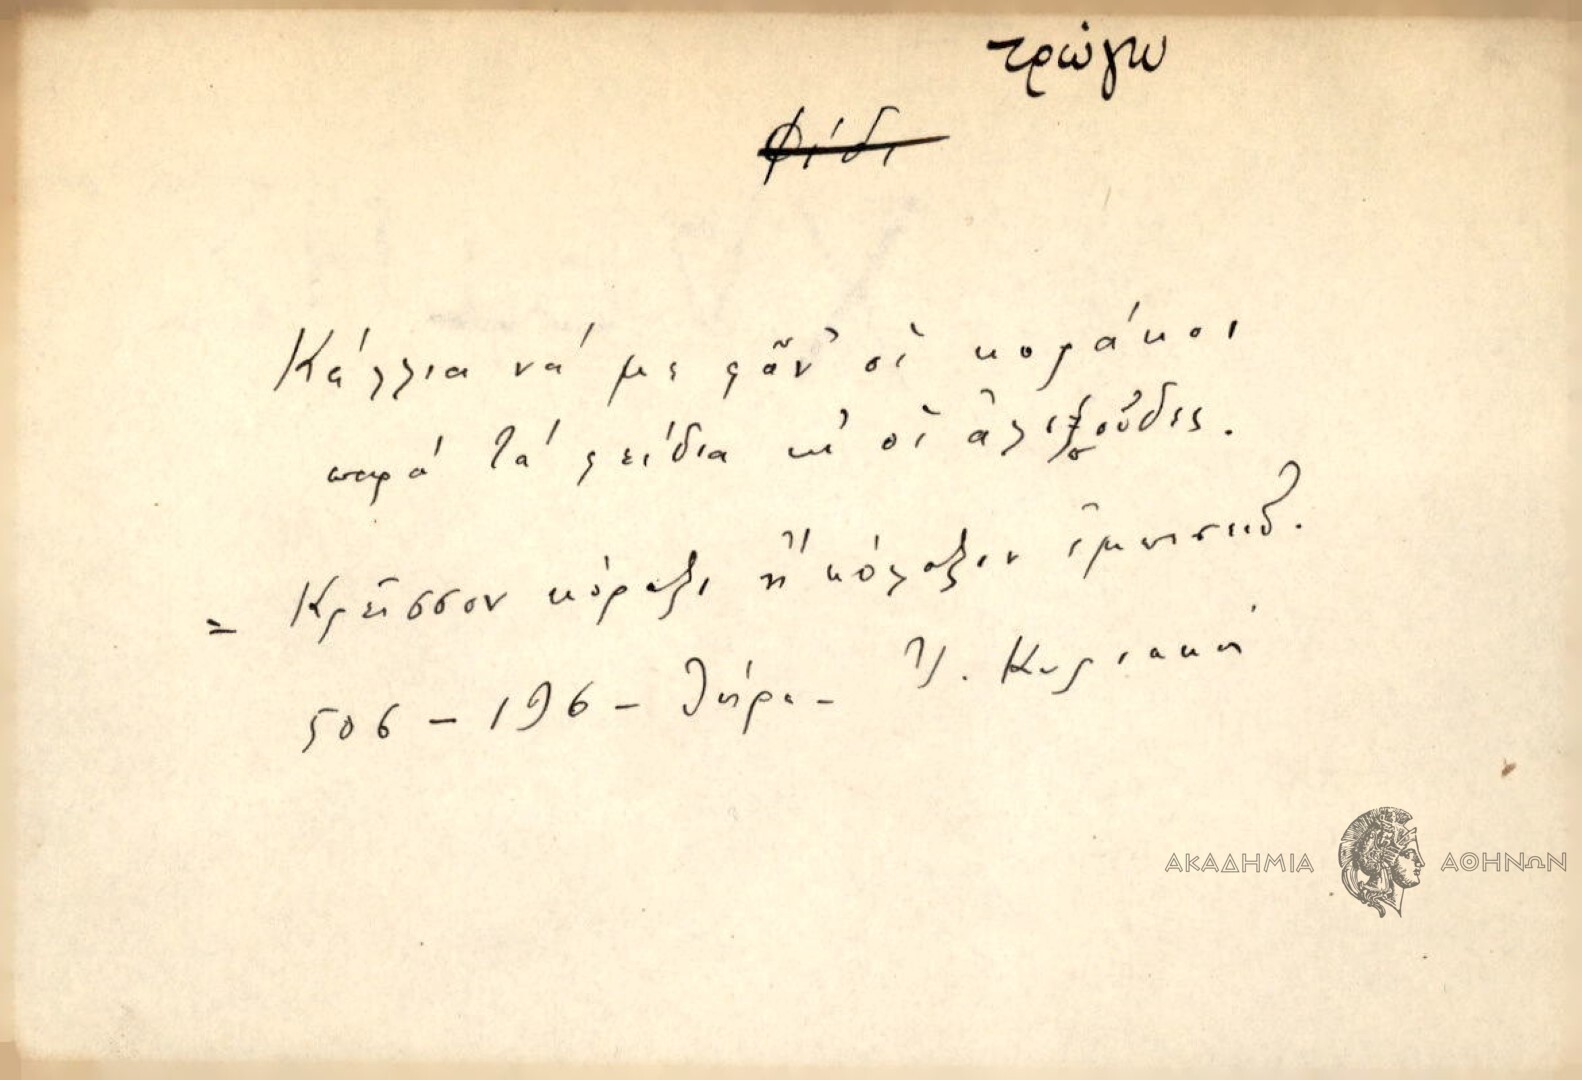 τρώγω
φίδι
Κάλλια νά με φᾶν' οἱ κοράκοι
παρά τά φείδια κι' οἱ ἀλεξοῦδες.
= Κρεῖσσον κόραξι ἤ κόλαξιν ἐμπεσεῖν.
506 – 196 – Θήρα –
Κυριακή
ΑΚΑΔΗΜΙΑ ΑΘΗΝΩΝ